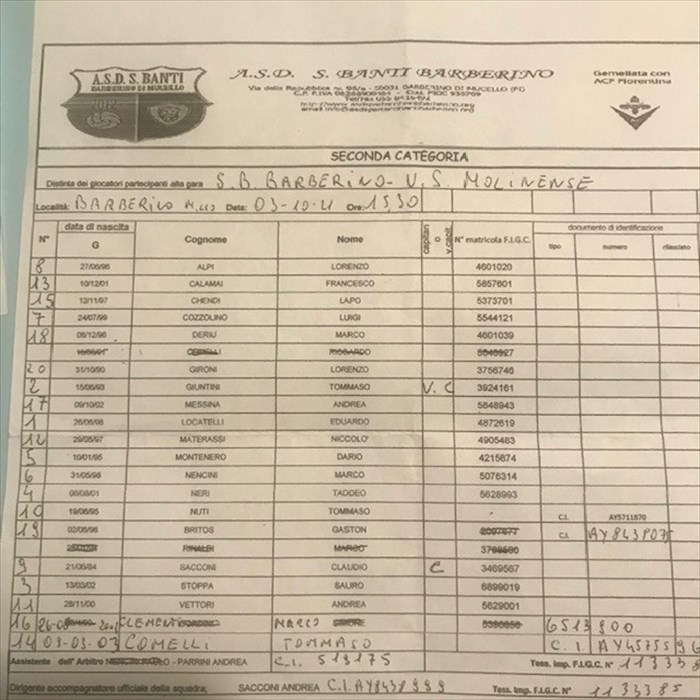 A.S.D. S. BANTI
BARBERINO DI MUGELLO
A.S.D. S. BANTI BARBERINO
Gemellata con
ACF Fiorentina
Via della Repubblica
BARBERINO DI MUGELLO (FI)
SECONDA CATEGORIA
Distinta dei giocatori partecipanti alla gara S.B. BARBERINO - U.S. MOLINENSE
Località: BARBERINO M.LLO Data: 03-10-21 Ore: 15,30
N° data di nascita G Cognome Nome capitan o v.capit. N° matricola F.I.G.C. documento di identificazione
tipo numero rilasciato
8 27/06/96 ALPI LORENZO 4601020
13 10/12/01 CALAMAI FRANCESCO 5857601
15 12/11/97 CHENDI LAPO 5373701
7 24/07/99 COZZOLINO LUIGI 5544121
18 06/12/96 DERIU MARCO 4601039
RICCARDO
20 31/10/90 GIRONI LORENZO 3756746
2 15/06/93 GIUNTINI TOMMASO V.C 3924161
17 09/10/02 MESSINA ANDREA 5848943
1 26/06/98 LOCATELLI EDUARDO 4872619
12 29/05/97 MATERASSI NICCOLO' 4905483
5 10/01/95 MONTENERO DARIO 4215674
6 31/05/98 NENCINI MARCO 5076314
4 06/08/01 NERI TADDEO 5628993
10 19/06/95 NUTI TOMMASO C.I. AY5711870
19 02/06/96 BRITOS GASTON C.I. AY843P075
RINALDI MARCO
9 21/06/84 SACCONI CLAUDIO C 3469567
3 13/03/02 STOPPA SAURO 6899019
11 28/11/00 VETTORI ANDREA 5629001
16 CLEMENTI MARCO 6513900
14 03-03-03 COMELLI TOMMASO C.I. AY45755 96
Assistente dell' Arbitro PARRINI ANDREA C.I. 519175 Tess. Imp. F.I.G.C. N° 113338
Dirigente accompagnatore ufficiale della squadra; SACCONI ANDREA C.I. AY8438999 Tess. Imp. F.I.G.C. N° 113385